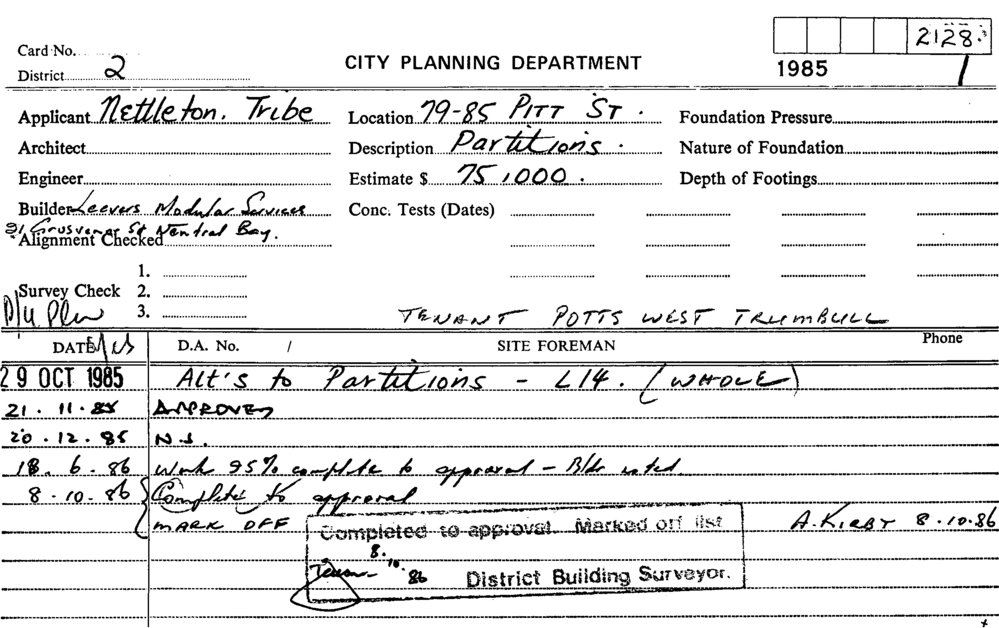 2128
Card No.
District 2
CITY PLANNING DEPARTMENT
1985 1
Applicant Nettleton. Tribe
Location 79-85 PITT ST.
Foundation Pressure
Architect
Description Partitions.
Nature of Foundation
Engineer
Estimate $ 75,000.
Depth of Footings
Builder Leevers Modular Services
Conc. Tests (Dates)
21 Grosvenor St Neutral Bay.
Alignment Checked
1.
Survey Check 2.
3.
TENANT POTTS WEST TRUMBULL
DATE
D.A. No. /
SITE FOREMAN
Phone
29 OCT 1985 Alt's to Partitions - L14. (WHOLE)
21.11.85 APPROVED
20.12.85 N.S.
18.6.86 Work 95% complete to approval - Bldr noted
8.10.86 Complete to approval
MARK OFF
A. KIRBY 8.10.86
Completed to approval. Marked off list
8.10.86
District Building Surveyor.